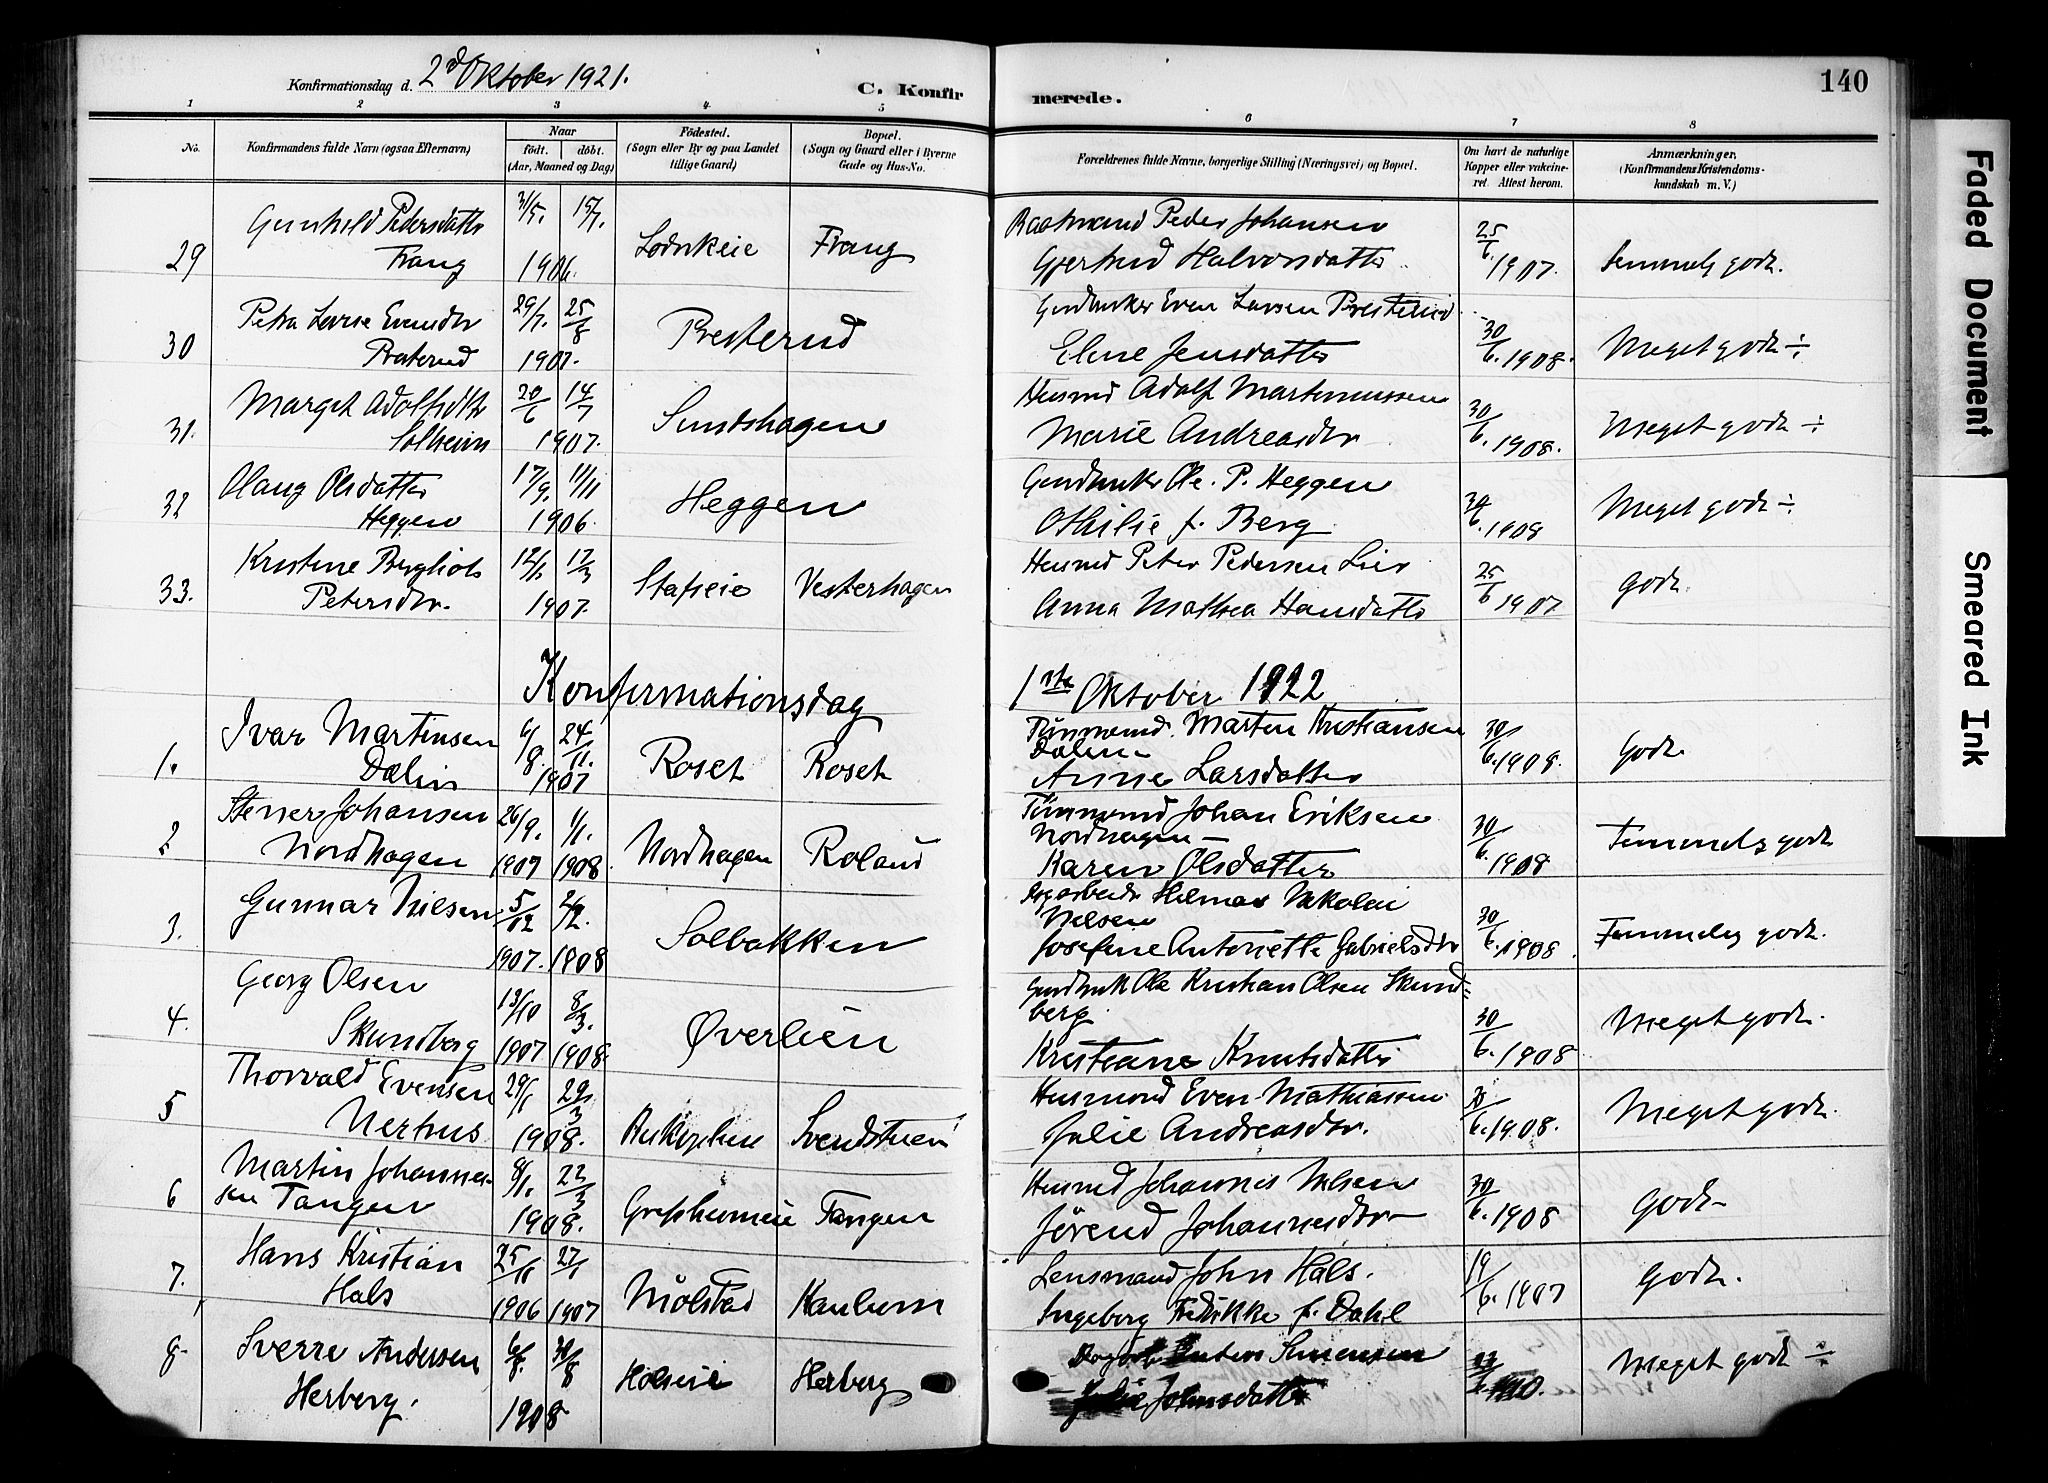 Konfirmationsdag d. 2d Oktober 1921.
C. Konfir
merede.
140
1 2 3 4 5 6 7 8
No.
Konfirmandens fulde Navn (ogsaa Efternavn)
Naar
født. døbt.
(Aar, Maaned og Dag)
Fødested.
(Sogn eller By og paa Landet
tillige Gaard)
Bopæl.
(Sogn og Gaard eller i Byerne
Gade og Hus-No.
Forældrenes fulde Navne, borgerlige Stilling (Næringsvei) og Bopæl.
Om havt de naturlige
Kopper eller vakcine-
ret Attest herom.
Anmærkninger.
(Konfirmandens Kristendoms-
kundskab m. V.)
Gunhild Pedersdatter 31/5. 15/7. Peder Johansen 25/6
29 Frang 1906. Frang Gjertrud Halvorsdatter 1907. Temmelig godt.
29/7. 25/8 Gardbruker Even Larsen Presterud
30 1907. Presterud Eline Jensdatter 30/6. 1908. Meget godt ÷
Margit Adolfsdtr 20/6 14/7 Husmd Adolf Martinussen
31. Solheim 1907. Sundshagen Marie Andreasdtr 30/6. 1908. Meget godt ÷
Olaug Olsdatter 17/9. 11/11 Gardbruker Ole P. Heggen
32 Heggen 1906. Heggen Othilie f. Berg 30/6. 1908 Meget godt ÷
Kristine Bergliot 12/1 17/3 Husmd Peter Pedersen Lier
33. Petersdtr. 1907. Vesterhagen Anna Mathea Hansdatter 25/6 1907 godt.
Konfirmationsdag 1ste Oktober 1922
Ivar Martinsen 6/8. 24/11. Tømmermd. Martin Kristiansen
Dalen
1. Dalen 1907 Roset Roset Anne Larsdatter 30/6. 1908. Godt
Stener Johansen 26/9. 1/1. Tømmermd Johan Eriksen
Nordhagen
2 Nordhagen 1907 1908. Nordhagen Roland Karen Olsdatter 30/6. 1908 Temmelig godt
Gunnar Nilsen 5/12 2/2. Dagarbeider Hilmar Nikolai
Nilsen
3. 1907. 1908 Solbakken Josefine Antonette Gabrielsdtr 30/6. 1908. Temmelig godt.
Georg Olsen 13/10 8/3. Gardbruk Ole Kristian Olsen Skund=
berg.
4. Skundberg 1907 1908. Øverlien Kristiane Knutsdatter 30/6. 1908 Meget godt.
Thorvald Evensen 29/1 29/3 Husmand Even Mathiassen
5 Nerhus 1908. Svendstuen Julie Andreasdtr. 30/6. 1908. Meget godt.
Martin Johannes- 8/1. 22/3 Husmd Johannes Nilsen
6 sen Tangen 1908. Grefsheimeie Tangen Jørend Johannesdtr 30/6. 1908 Godt
Hans Kristian 25/11 27/1 Lensmand John Hals.
7. Hals 1906 1907 Mølstad Kaulum Ingeborg Fredrikke f. Dahl 19/6. 1907 Godt.
Sverre Andersen 6/7. 30/8
8 Herberg. 1908 Holseie Herberg Julie Johnsdatter Meget godt ÷
Faded Document
Smeared Ink